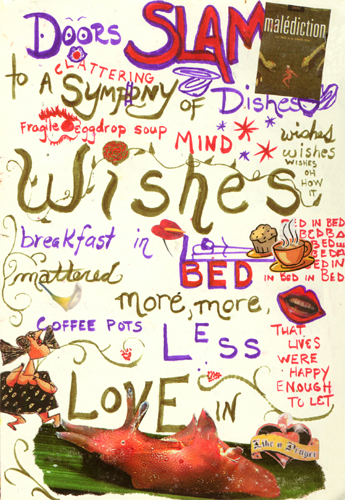 DOORS SLAM
malédiction
CLATTERING
to A SYMPHONY OF Dishes
Fragile eggdrop soup
MIND
wishes
wishes
WISHES
OH
HOW
IT
Wishes
breakfast in
BED
IN BED
IN BED IN BED
mattered
moré, more,
COFFEE POTS
LESS
THAT
LIVES
WERE
HAPPY
ENOUGH
TO LET
LOVE IN
Like a Prayer